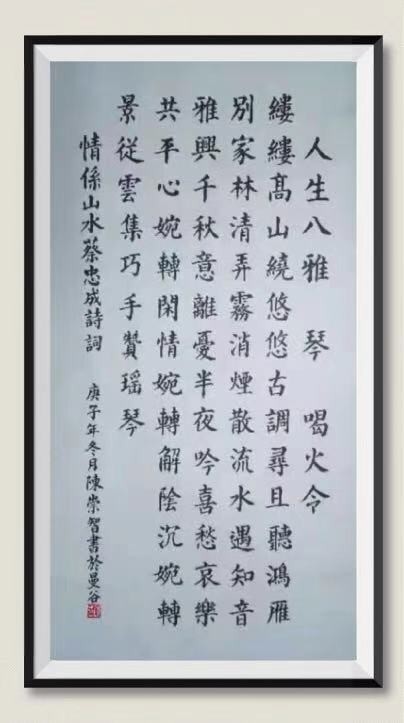 人生八雅 琴 喝火令
縷縷髙山繞悠悠古調尋且聽鴻雁
別家林清弄霧消煙散流水遇知音
雅興千秋意離憂半夜吟喜愁哀樂
共平心婉轉閑情婉轉解陰沉婉轉
景従雲集巧手贊瑶琴
情係山水蔡忠成詩詞
庚子年冬月陳崇智書於曼谷